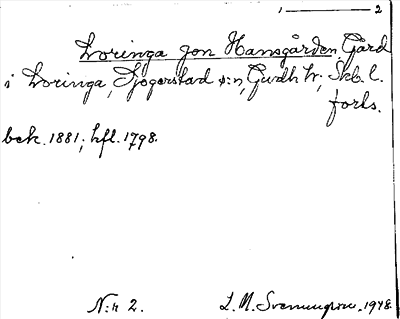 1 ——— 2
Loringa gon Hansgården Gård
i Loringa, Sjogerstad s:n, Gudh hr, Skb. l.
forts.
bek. 1881; hfl. 1798.
N:r 2. 1948.